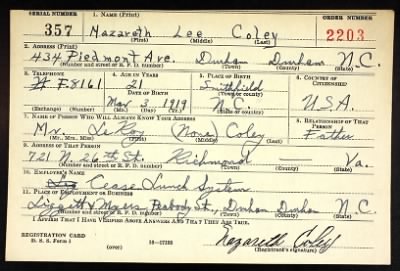 SERIAL NUMBER 1. NAME (Print) ORDER NUMBER
357 Nazareth Lee Coley 2203
(First) (Middle) (Last)
2. ADDRESS (Print)
434 Piedmont Ave. Durham Durham N.C.
(Number and street or R. F. D. number) (Town) (County) (State)
3. TELEPHONE 4. AGE IN YEARS 5. PLACE OF BIRTH 6. COUNTRY OF CITIZENSHIP
F8161 21 Smithfield
DATE OF BIRTH (Town or county)
Mar 3, 1919 N.C. U.S.A.
(Exchange) (Number) (Mo.) (Day) (Yr.) (State or country)
7. NAME OF PERSON WHO WILL ALWAYS KNOW YOUR ADDRESS 8. RELATIONSHIP OF THAT PERSON
Mr. LeRoy (None) Coley Father
(Mr., Mrs., Miss) (First) (Middle) (Last)
9. ADDRESS OF THAT PERSON
721 N. 26th St. Richmond — Va.
(Number and street or R. F. D. number) (Town) (County) (State)
10. EMPLOYER'S NAME
Cease Lunch System
11. PLACE OF EMPLOYMENT OR BUSINESS
Liggett & Myers Peabody St., Durham Durham N.C.
(Number and street or R. F. D. number) (Town) (County) (State)
I AFFIRM THAT I HAVE VERIFIED ABOVE ANSWERS AND THAT THEY ARE TRUE.
REGISTRATION CARD
D. S. S. Form 1 (over) 16—17105 Nazareth Coley
(Registrant's signature)